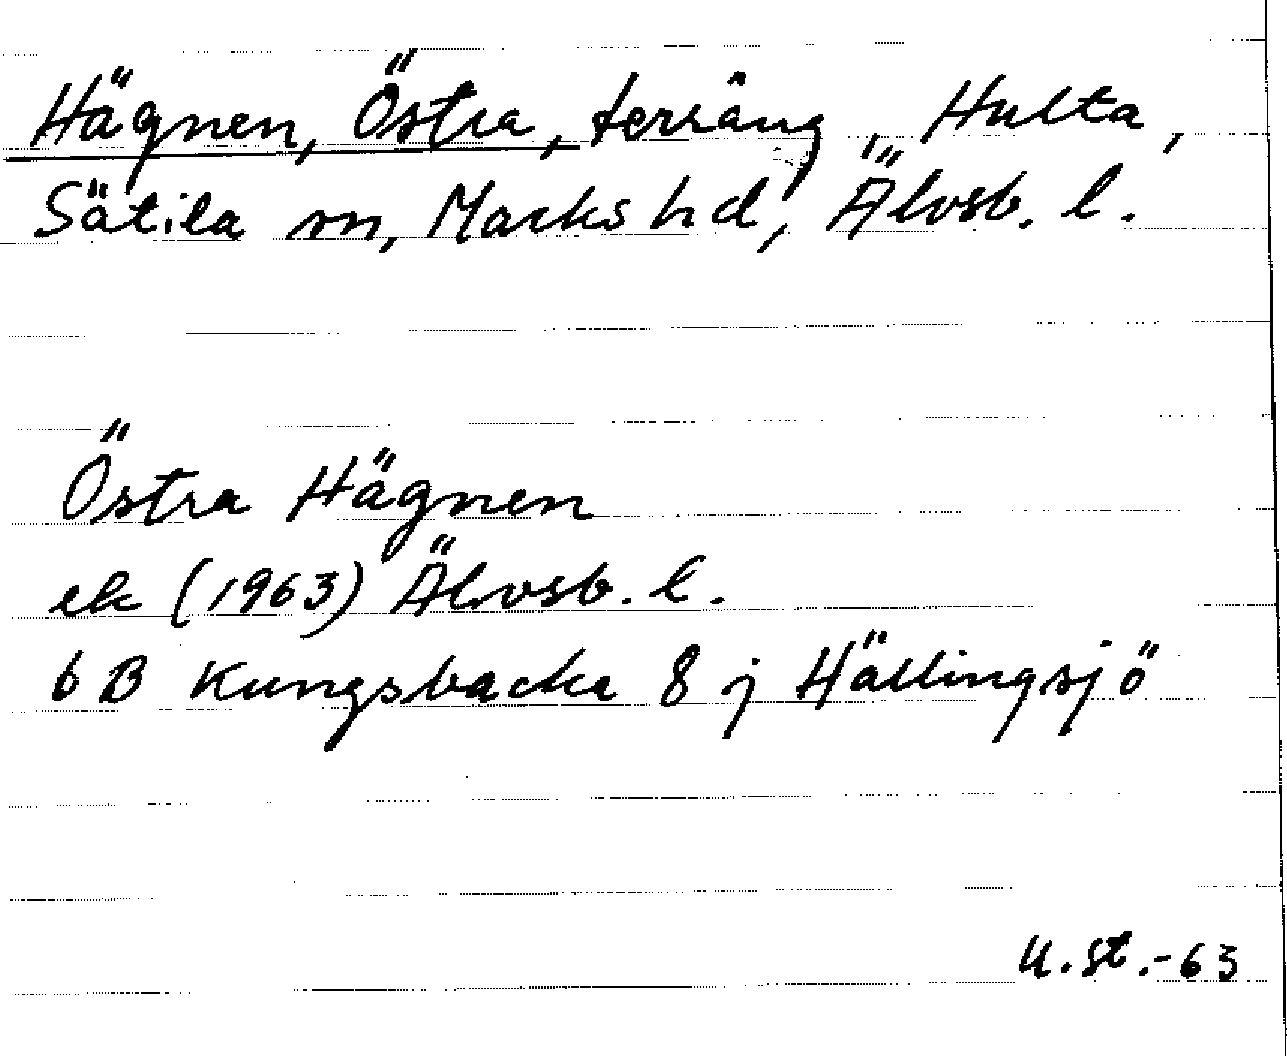 Hägnen, Östra, terräng, Hulta,
Sätila sn, Marks hd, Älvsb. l.
Östra Hägnen
ek (1963) Älvsb. l.
6 B Kungsbacka 8 j Hällingsjö
U.St.-63